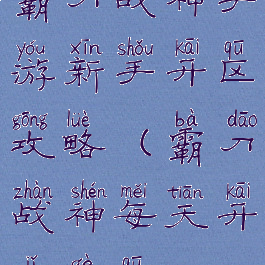 霸刀战神手
yóu xīn shǒu kāi qū
游新手开区
gōng lüè bà dāo
攻略(霸刀
zhàn shén měi tiān kāi
战神每天开